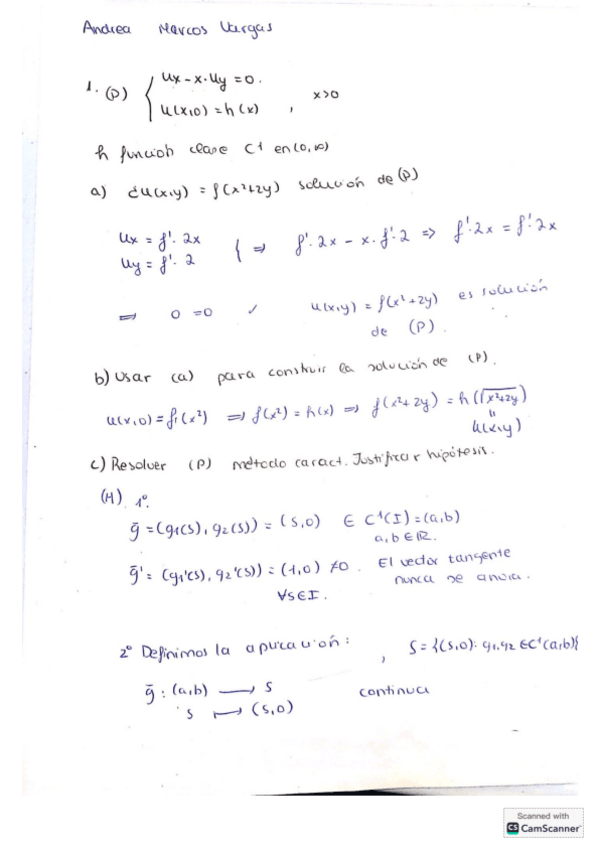 Andrea Marcos Vargas
1. (P) { ux - x·uy = 0.
u(x,0) = h(x) , x>0
h función clase C1 en (0,∞)
a) ¿u(x,y) = f(x²+2y) solución de (P)
ux = f'· 2x
uy = f'· 2 } ⇒ f'·2x - x·f'·2 ⇒ f'·2x = f'·2x
⇒ 0 = 0 ✓ u(x,y) = f(x²+2y) es solución
de (P).
b) Usar (a) para construir la solución de (P).
u(x,0) = f(x²) ⇒ f(x²) = h(x) ⇒ f(x²+2y) = h(√x²+2y)
"
u(x,y)
c) Resolver (P) método caract. Justificar hipótesis.
(H) 1º
ḡ = (g1(s), g2(s)) = (s,0) ∈ C1(I) = (a,b)
a,b ∈ ℝ.
ḡ' = (g1'(s), g2'(s)) = (1,0) ≠ 0. El vector tangente
∀s∈I. nunca se anula.
2º Definimos la aplicación: , S = {(s,0): g1,g2 ∈ C1(a,b)}
ḡ : (a,b) → S continua
s ↦ (s,0)
Scanned with
CS CamScanner